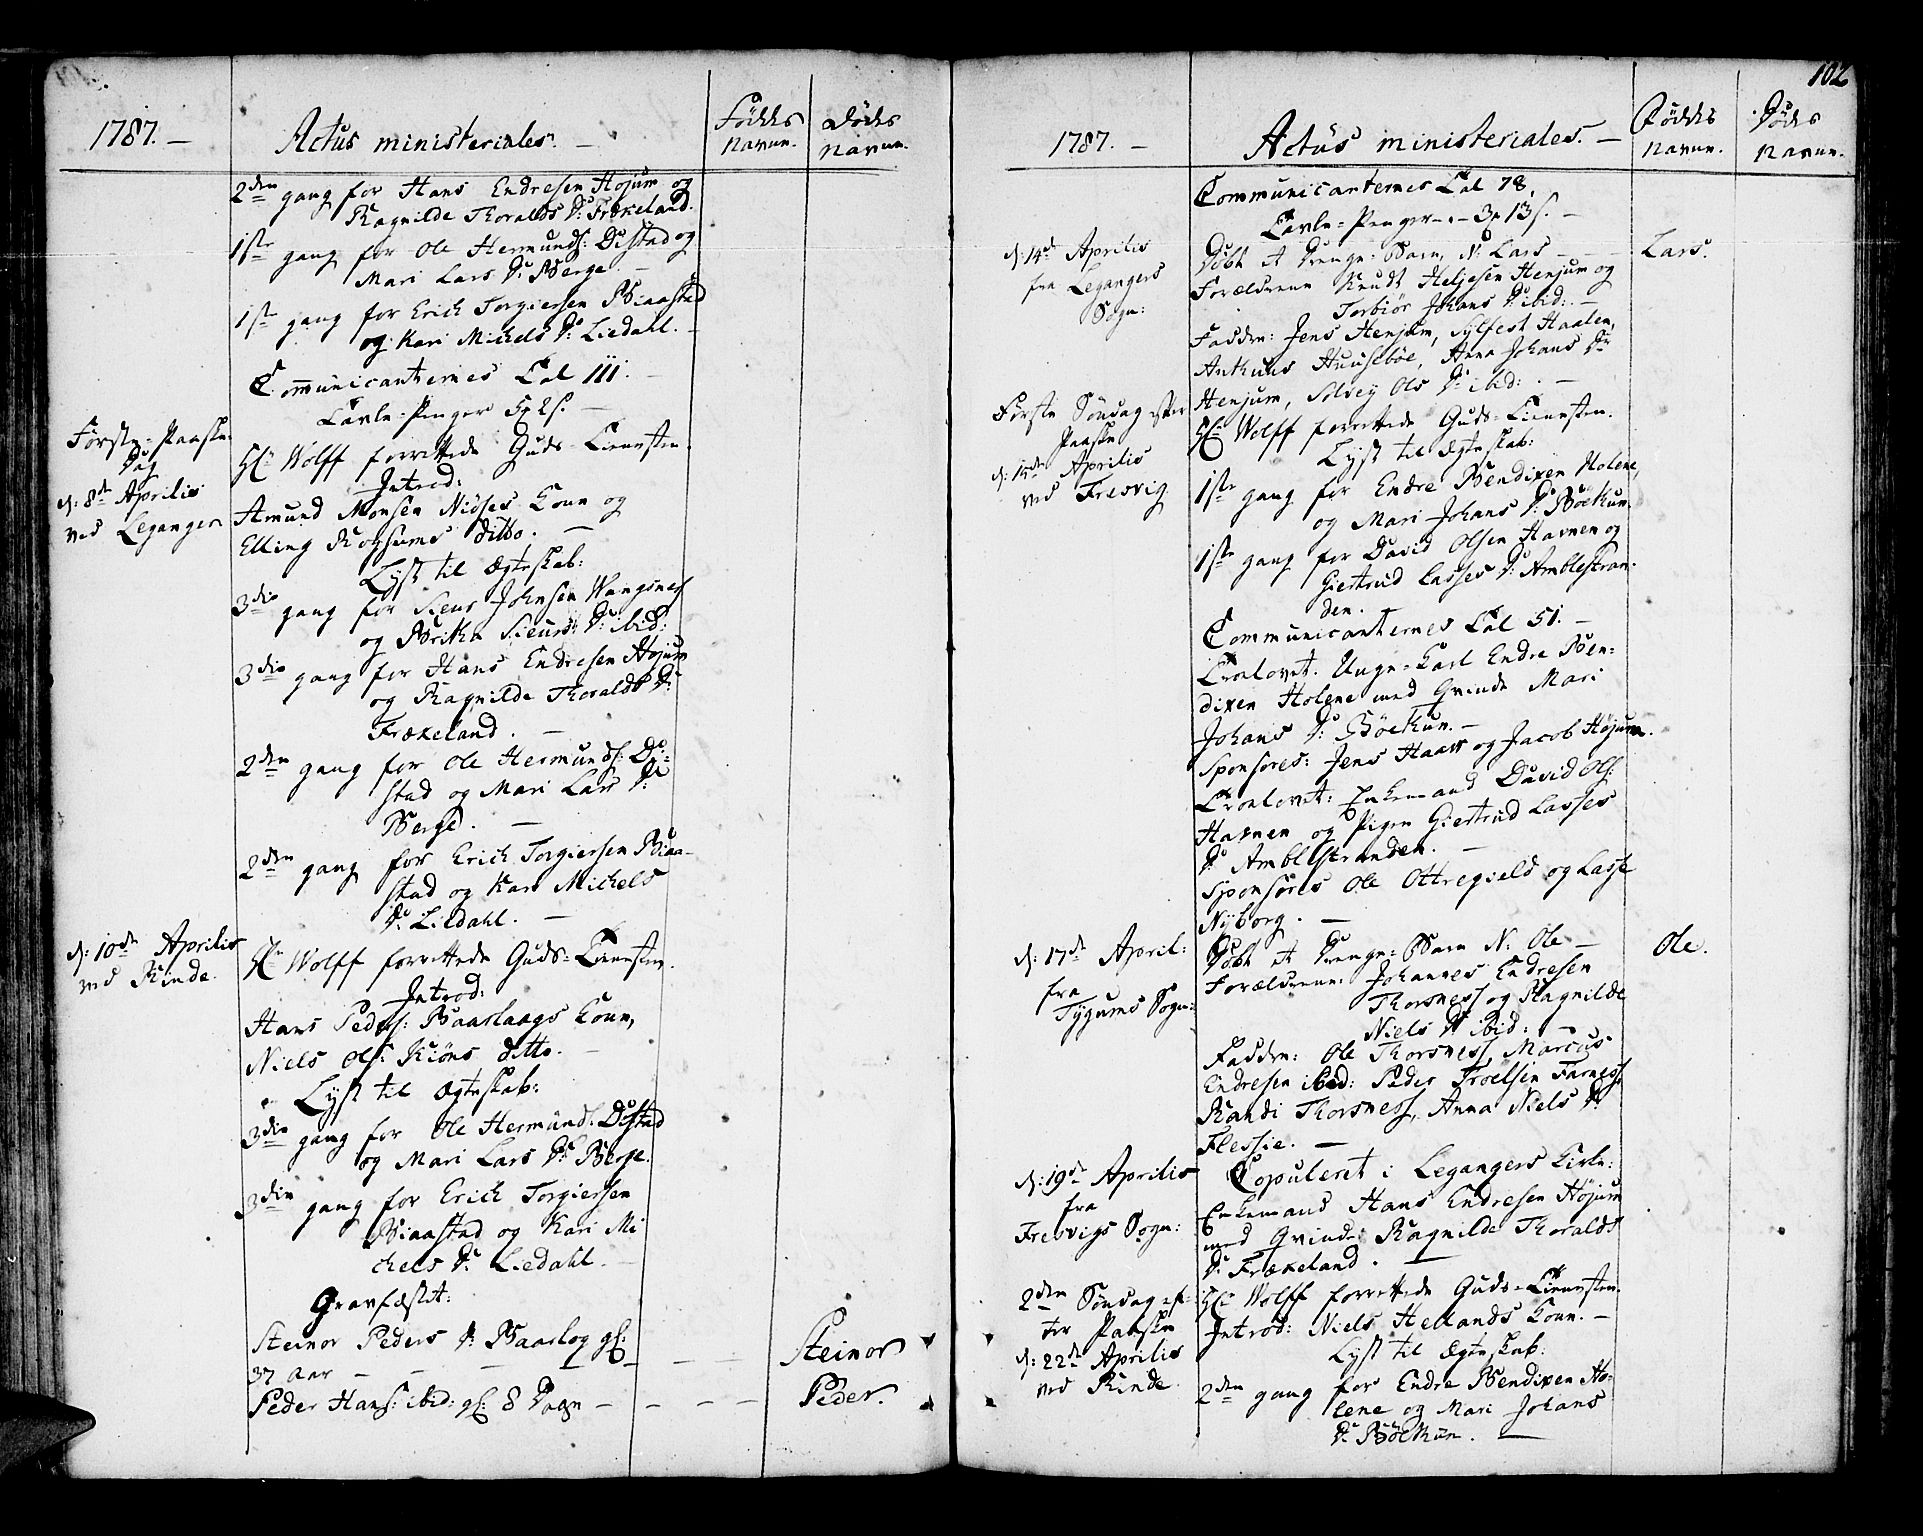 1787. —
Actus ministeriales. —
Føddes
Navne.
Dødes
Navne.
2den gang for Hans Endresen Højum og
Ragnilde Thoralds D: Frækeland.
1ste gang for Ole Hermunds: Distad og
Mari Lars D: Berge. —
1ste gang for Erich Torgiersen Biaastad
og Kari Michels D: Liedahl. —
Communicanternes Tal 111. —
Tavle-Penger 5 2s. —
Første-Paaske-
Dag
d: 8de Aprilis
ved Leganger
Hr. Wolff forrettede Guds-Tienesten.
Introd:
Amund Monsen Niøses Kone og
Elling Kopsums ditto. —
Lyst til Ægteskab:
3die gang for Siens Johnsen Wangsnes
og Britha Sieurs D: ibid:
3die gang for Hans Endresen Højum
og Ragnilde Thoralds D:
Frækeland. —
2den gang for Ole Hermunds: Di-
stad og Mari Lars D:
Berge. —
2den gang for Erich Torgiersen Biaa-
stad og Kari Michels
D: Liedahl. —
d: 10de Aprilis
ved Rinde.
Hr. Wolff forrettede Guds-Tienesten.
Introd:
Hans Peders: Baarlaags Kone,
Niels Ols: Kiøns ditto. —
Lyst til Ægteskab:
3die gang for Ole Hermunds: Distad
og Mari Lars D: Berge.
3die gang for Erich Torgiersen
Biaastad og Kari Mi
chels D: Liedahl. —
Gravfæstet:
Steinor Peders D: Baarlog gl:
37 Aar — — — — — —
Steinor
Peder Hans: ibid: gl: 8 Dage — — — —
Peder.
102
1787. —
Actus ministeriales. —
Føddes
Navne.
Dødes
Navne.
Communicanternes Tal 78.
Tavle-Penger — 3 13s. —
d: 14de Aprilis
fra Legangers
Sogn:
Døbt et Drenge-Barn, N: Lars — — —
Lars.
Forældrene Knudt Heljesen Henjum og
Torbiør Johans D: ibid: —
Faddere: Jens Henjum, Sylfest Haalen,
Anthuns Huusebøe, Anna Johans D:
Henjum, Solvey Ols D: ibid: —
Første Søndag efter
Paaske
d: 15de Aprilis
ved Fresvig
Hr. Wolff forrettede Guds-Tienesten.
Lyst til Ægteskab:
1ste gang for Endre Bendixen Holene,
og Mari Johans D: Bøethun.
1ste gang for David Olsen Havnen og
Giertrud Lasses D: Amblestran-
den.
Communicanternes Tal 51. —
Trolovet: Unge-Karl Endre Ben-
dixen Holene med Qvinde Mari
Johans D: Bøethun. —
Sponsores: Jens Haass og Jacob Højum.
Trolovet: Enkemand David Ols:
Havnen og Pigen Giertrud Lasses
D: Amblestranden. —
Sponsores Ole Ottregield og Lasse
Nyborg. —
d: 17de April:
fra
Tygums Sogn:
Døbt et Drenge-Barn N: Ole —
Ole.
Forældrene: Johannes Endresen
Thorsness og Ragnilde
Niels D: ibid: —
Faddere: Ole Thorsness, Marcus
Endresen ibid: Peder Troelsen Farness,
Randi Thorsness, Anna Niels D:
Flessie. —
d: 19de Aprilis
fra
Fresvigs Sogn:
Copuleret i Legangers Kirke:
Enkemand Hans Endresen Højum
med Qvinde Ragnilde Thoralds
D: Frækeland. —
2den Søndag ef-
ter Paaske
d: 22de Aprilis
ved Rinde.
Hr. Wolff forrettede Guds-Tienesten.
Introd: Niels Hellands Kone. —
Lyst til Ægteskab:
2den gang for Endre Bendixen Ho-
lene og Mari Johans
D: Bøethun. —